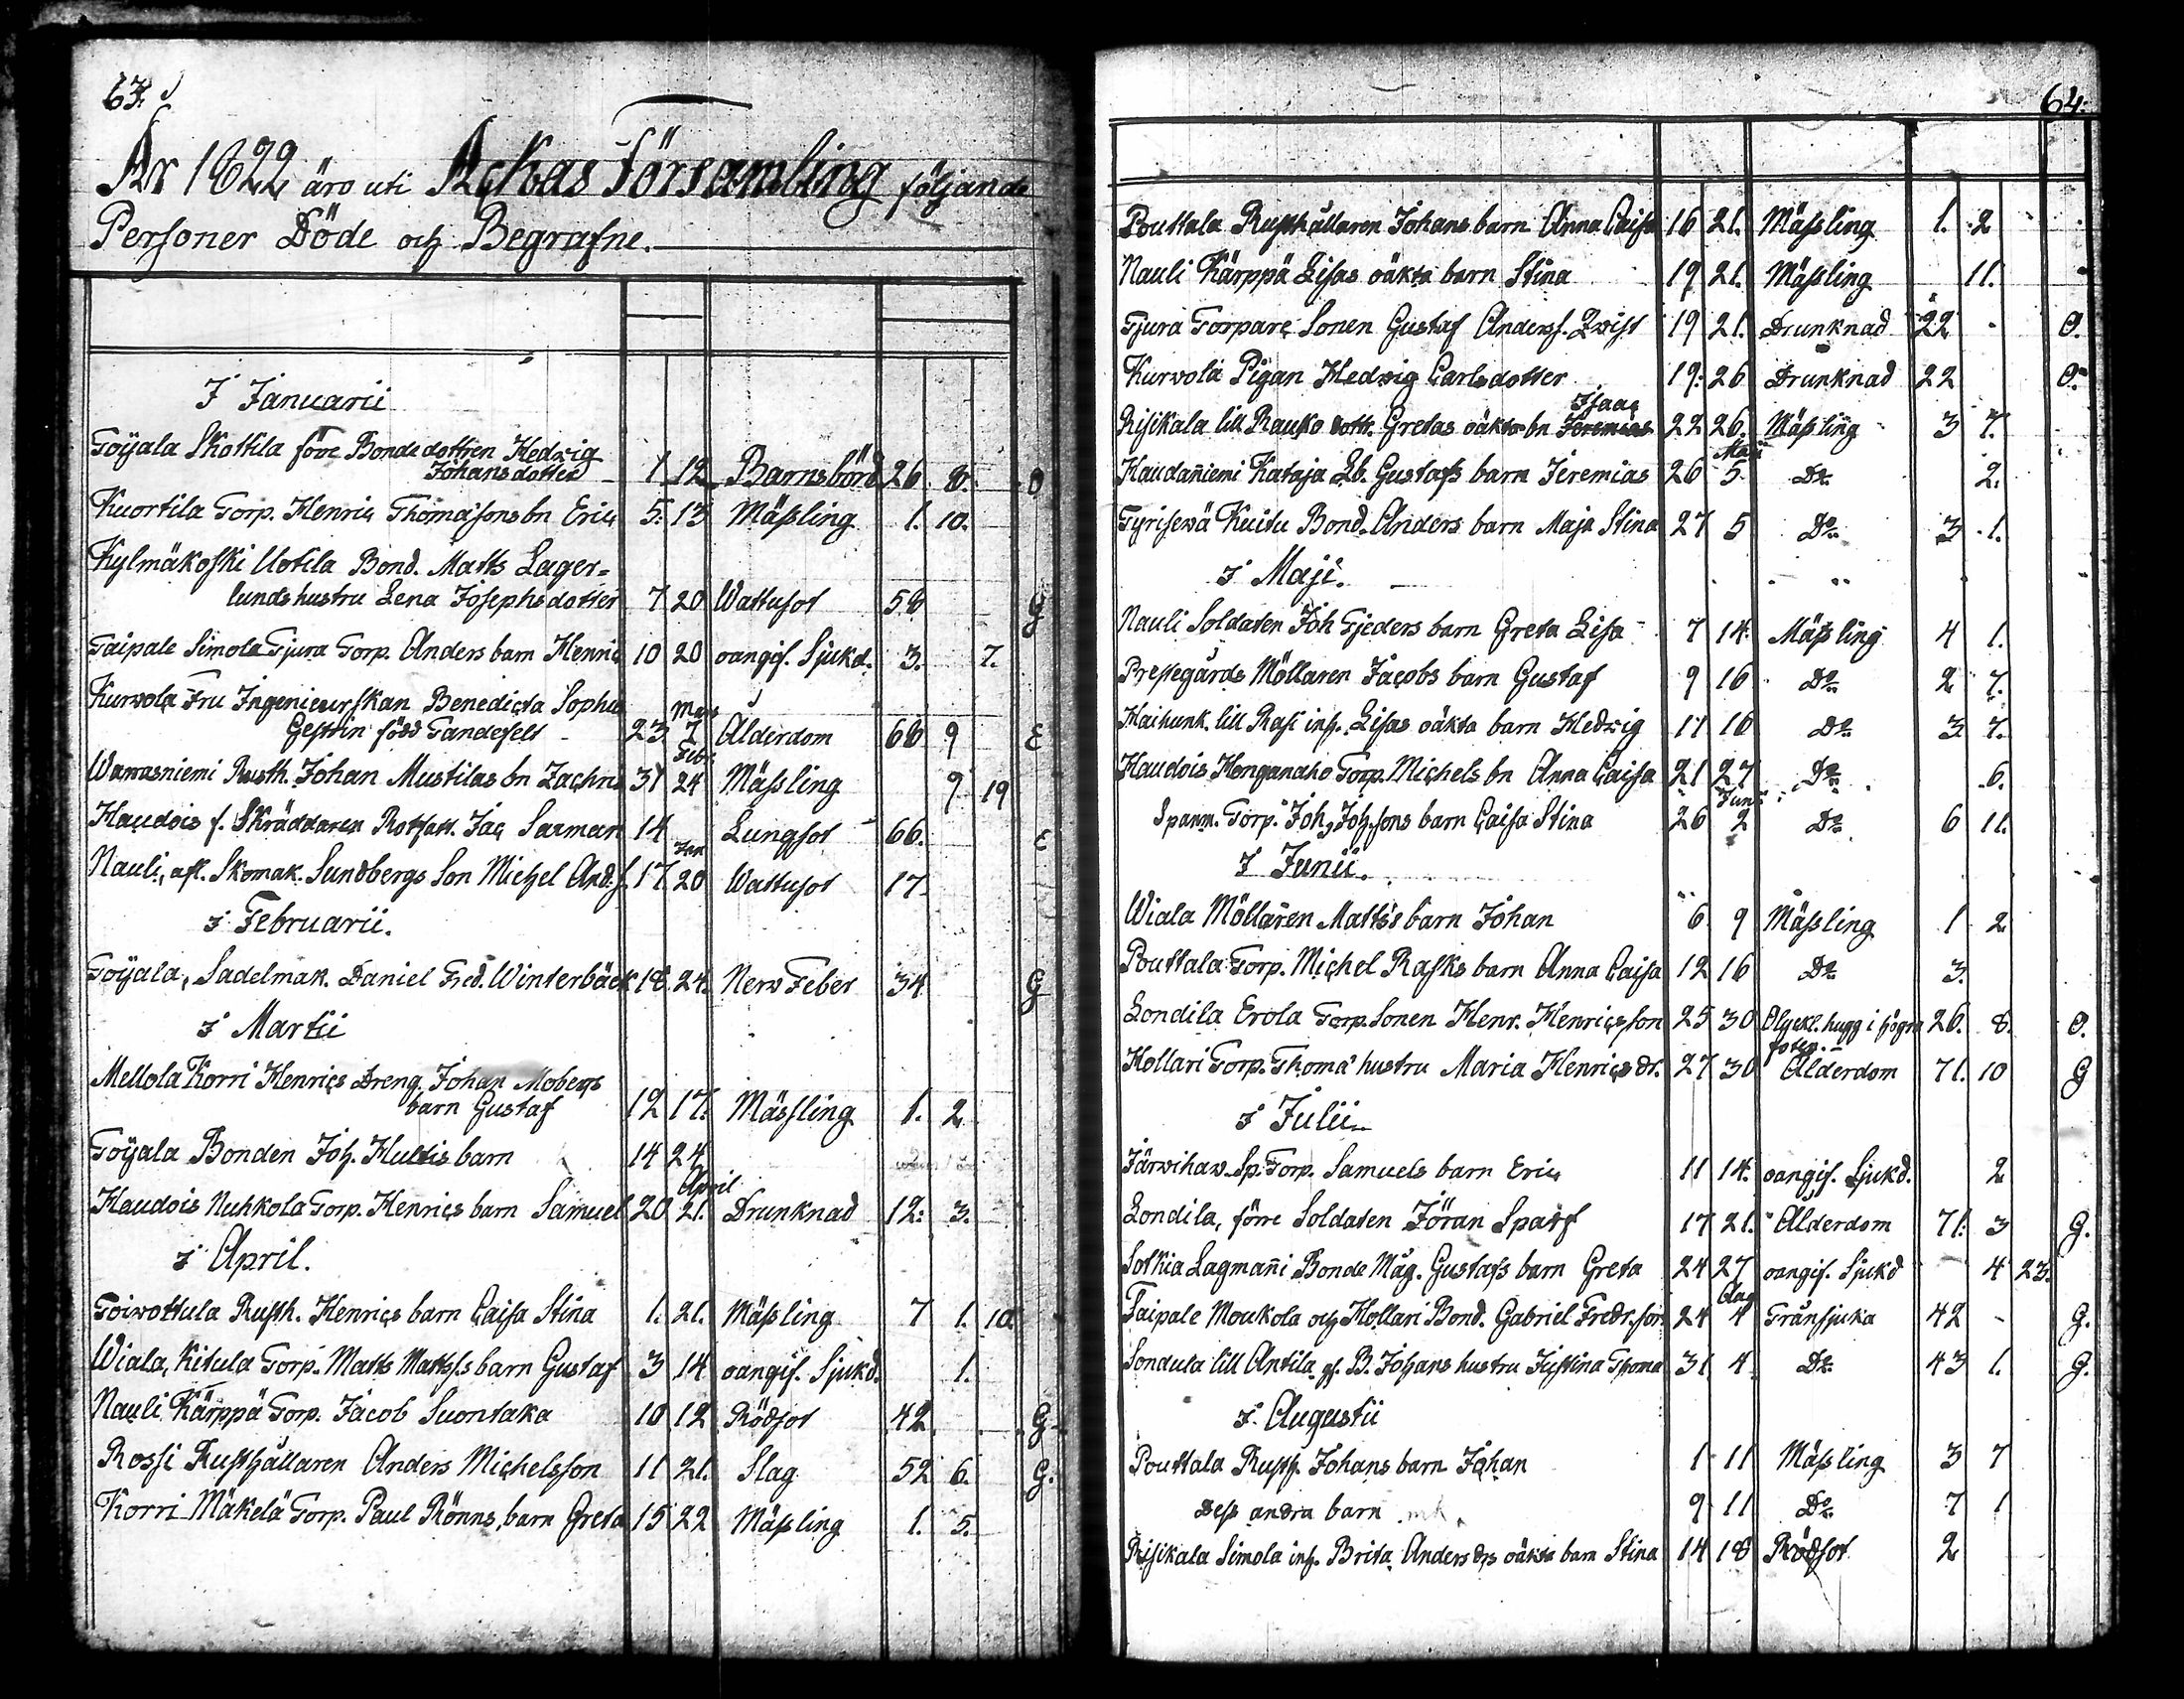 63.
År 1822 äro uti Ackas Församling följande
Personer Döde och Begrafne.
I Januarii
Toijala Skottila före Bondedottren Hedvig
Johansdotter 1 12 Barnsbörd 26 8. O
Kuortila Torp. Henric Thomæsons bn Eric 5. 13 Mässling 1. 10.
Kylmäkoski Uotila Bond. Matts Lager=
lunds hustru Lena Josephsdotter 7 20 Wattusot 58 G
Taipale Simola Tjura Torp. Anders barn Henric 10 20 oangif. Sjukd. 3. 7.
Kurvola Fru Ingenieurskan Benedicta Sophia
Mars
Gestrin född Tandefelt 23 1 Ålderdom 68 9 E
Febr.
Wawasniemi Rusth. Johan Mustilas bn Zachris 31 24 Mässling 9 19
Haudois f. Skräddaren Rotfatt. Jac Saxman 14 Lungsot 66. E
Jan
Nauli, afl. Skomak. Sundbergs Son Michel And.s. 17 20 Wattusot 17.
I Februarii.
Toijala, Sadelmak. Daniel Fred. Winterbäck 18. 24. Nerv Feber 34 G
I Martii
Mellola Korri Henrics Dreng Johan Mobergs
barn Gustaf 12 17. Mässling 1. 2
Toijala Bonden Joh. Hultis barn 14 24
April
Haudois Nuhkola Torp. Henrics barn Samuel 20 21. Drunknad 12: 3.
I April.
Toivottula Rusth. Henrics barn Caisa Stina 1. 21. Mässling 7 1. 10.
Wiala, Kitula Torp. Matts Mattss.s barn Gustaf 3 14 oangif. Sjukd. 1.
Nauli Kärppä Torp. Jacob Suontaka 10 12 Rödsot 42 G
Rossi Rusthållaren Anders Michelsson 11 21. Slag 52 6. G.
Korri Mäkelä Torp. Paul Rönns, barn Greta 15 22 Mässling 1. 5.
64.
Pouttala Rusthållaren Johans barn Anna Caisa 16 21. Mässling 1. 2
Nauli Kärppä Lisas oäkta barn Stina 19 21. Mässling 11.
Tjura Torpare Sonen Gustaf Anderss. Qwist 19 21. Drunknad 22 - O.
Kurvola Pigan Hedvig Carlsdotter 19. 26 Drunknad 22 O.
Isaac
Risikala lill Rauko dott. Gretas oäkta bn Jeremias 22 26. Mässling 3 7.
Maji
Haudaniemi Kataja Lb. Gustafs barn Jeremias 26 5. Do 2.
Tyrisevä Kuitu Bond. Anders barn Maja Stina 27 5 Do 3 1.
I Maji.
Nauli Soldaten Joh Tjeders barn Greta Lisa 7 14. Mässling 4 1.
Prestegårds Möllaren Jacobs barn Gustaf 9 16 Do 2 7.
Kaihunk. lill Rasi inh. Lisas oäkta barn Hedvig 11 16 Do 3 7.
Haudois Honganaho Torp. Michels bn Anna Caisa 21 27 Do 6.
Junii
Spann. Torp. Joh, Joh.sons barn Caisa Stina 26 2 Do 6 11.
I Junii.
Wiala Möllaren Matts's barn Johan 6 9 Mässling 1 2
Pouttala Torp. Michel Rasks barn Anna Caisa 12 16 Do 3.
Londila Erola Torp. Sonen Henr. Henricsson 25 30 Olyckl. hugg i högra 26. 8. O.
foten.
Hollari Torp. Thoma's hustru Maria Henrics dr. 27 30 Ålderdom 71. 10 G
I Julii
Järvihav. Sp. Torp. Samuels barn Eric 11 14. oangif. Sjukd. 2
Londila, förre Soldaten Jöran Sparf 17 21. Ålderdom 71. 3 G.
Sotkia Lagmanni Bonde Måg. Gustafs barn Greta 24 27 oangif. Sjukd 4 23.
Aug
Taipale Moukola och Hollari Bond. Gabriel Fredr.son 24 4 Frånsjuka 42 - G.
Sondula lill Antila gf. B. Johans hustru Justina Thoma 31 4. Do 43 1. G.
I Augustii
Pouttala Rusth. Johans barn Johan 1 11 Mässling 3 7
Dess andra barn 9 11 Do 7 1
Risikala Simola inh. Brita Anders drs oäkta barn Stina 14 18 Rödsot 2